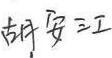 胡安江